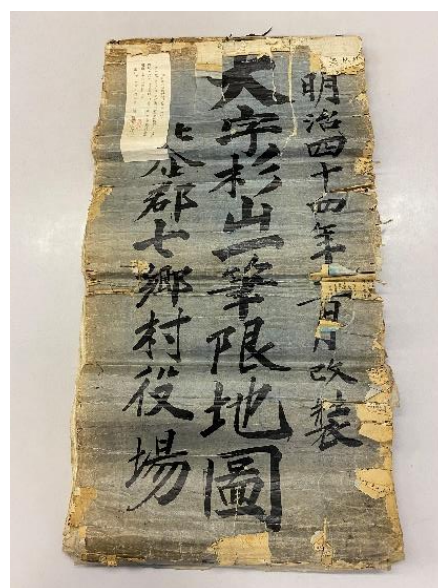 明治四十四年一百月改装
大字杉山一筆限地圖
比企郡七郷村役場